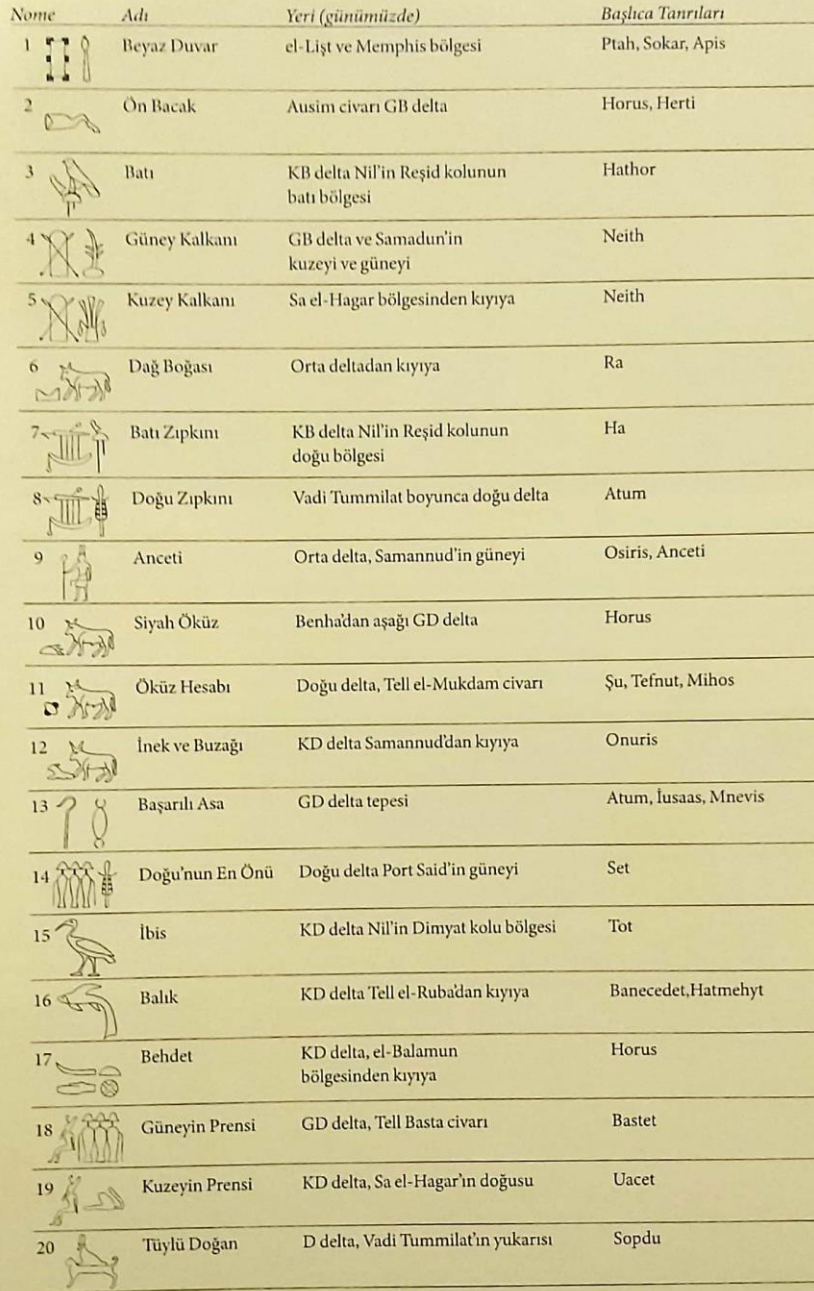 Nome Adı Yeri (günümüzde) Başlıca Tanrıları
1 Beyaz Duvar el-Lişt ve Memphis bölgesi Ptah, Sokar, Apis
2 Ön Bacak Ausim civarı GB delta Horus, Herti
3 Batı KB delta Nil'in Reşid kolunun Hathor
batı bölgesi
4 Güney Kalkanı GB delta ve Samadun'in Neith
kuzeyi ve güneyi
5 Kuzey Kalkanı Sa el-Hagar bölgesinden kıyıya Neith
6 Dağ Boğası Orta deltadan kıyıya Ra
7 Batı Zıpkını KB delta Nil'in Reşid kolunun Ha
doğu bölgesi
8 Doğu Zıpkını Vadi Tummilat boyunca doğu delta Atum
9 Anceti Orta delta, Samannud'in güneyi Osiris, Anceti
10 Siyah Öküz Benha'dan aşağı GD delta Horus
11 Öküz Hesabı Doğu delta, Tell el-Mukdam civarı Şu, Tefnut, Mihos
12 İnek ve Buzağı KD delta Samannud'dan kıyıya Onuris
13 Başarılı Asa GD delta tepesi Atum, İusaas, Mnevis
14 Doğu'nun En Önü Doğu delta Port Said'in güneyi Set
15 İbis KD delta Nil'in Dimyat kolu bölgesi Tot
16 Balık KD delta Tell el-Ruba'dan kıyıya Banecedet,Hatmehyt
17 Behdet KD delta, el-Balamun Horus
bölgesinden kıyıya
18 Güneyin Prensi GD delta, Tell Basta civarı Bastet
19 Kuzeyin Prensi KD delta, Sa el-Hagar'ın doğusu Uacet
20 Tüylü Doğan D delta, Vadi Tummilat'ın yukarısı Sopdu